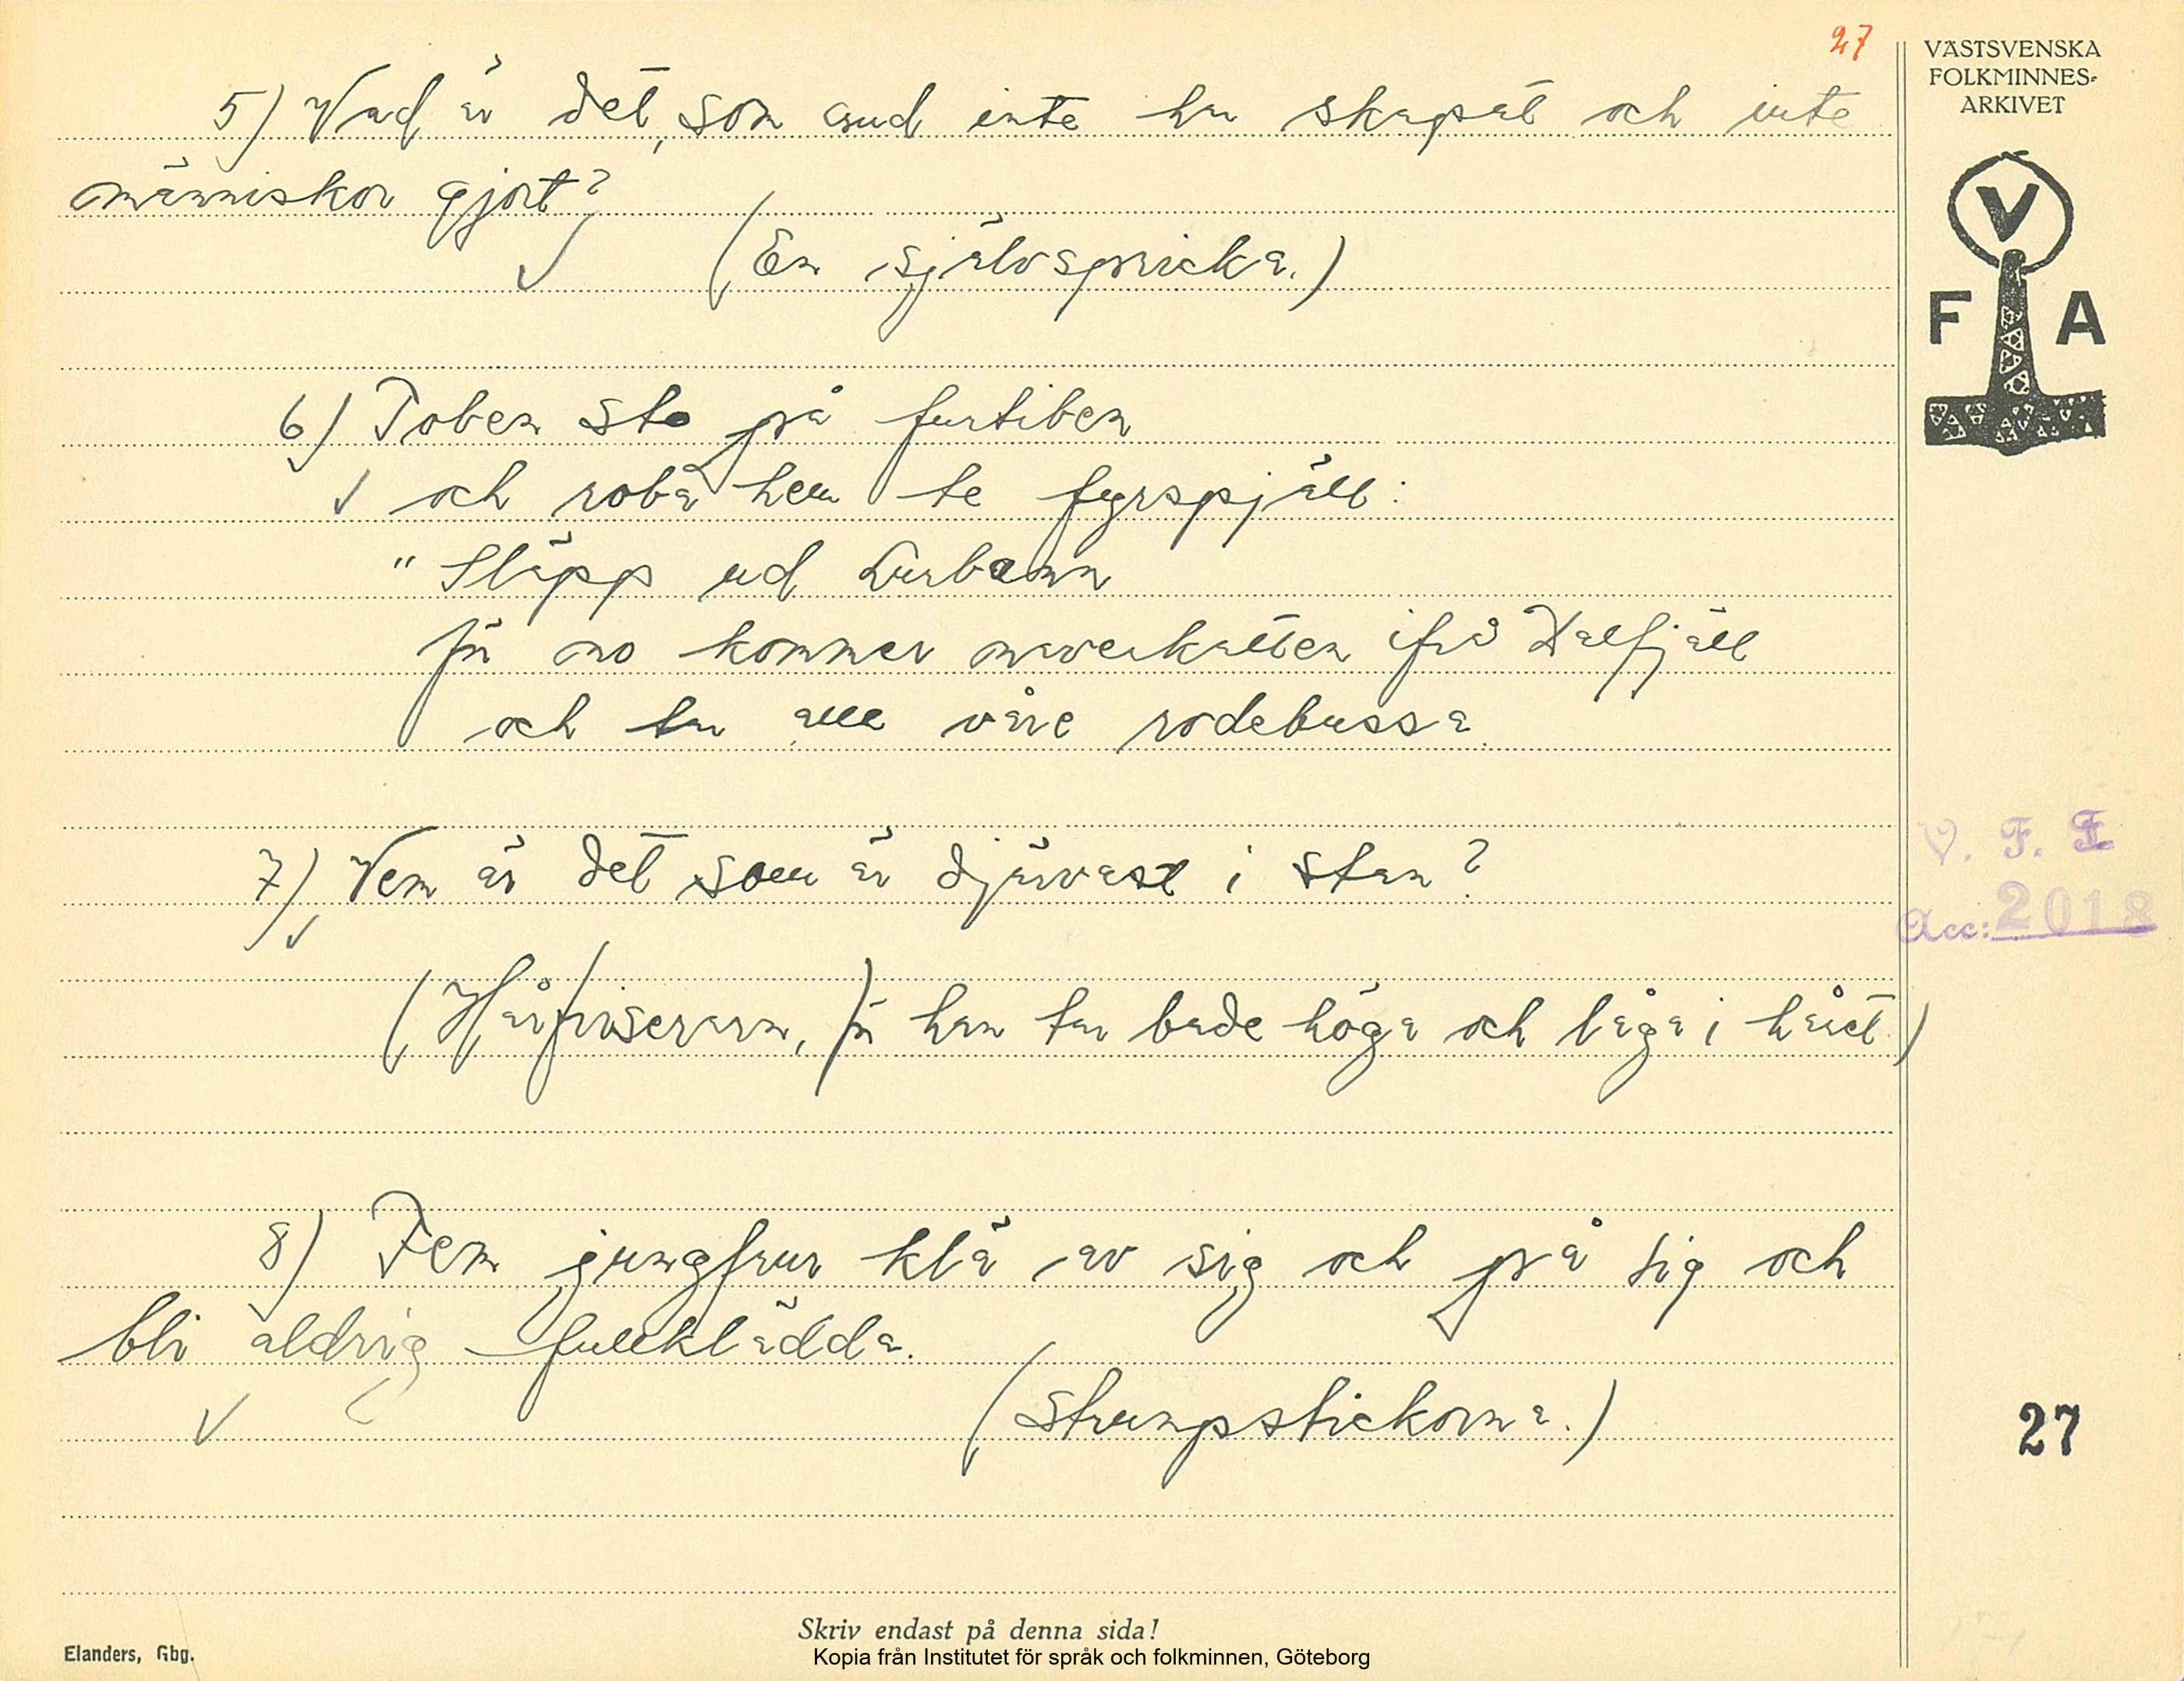 27
VÄSTSVENSKA
FOLKMINNES-
ARKIVET
V
F A
5) Vad är det, som Gud inte har skapat och inte
människor gjort?
(En självspricka.)
6) Toben sto på furtiben
och roba hem te fyrspjäll:
"Släpp ud Lurbann
för no kommer maverkatten ifrå Dalfjäll
och tar alle våre rodebussa
7) Vem är det som är djärvast i stan?
(Hårfriseraren, för han tar både höga och låga i håret)
8) Fem jungfrur klä av sig och på sig och
bli aldrig fullklädda.
(Strumpstickorna.)
V. F. F.
Acc: 2018
27
Skriv endast på denna sida!
Elanders, Gbg.
Kopia från Institutet för språk och folkminnen, Göteborg